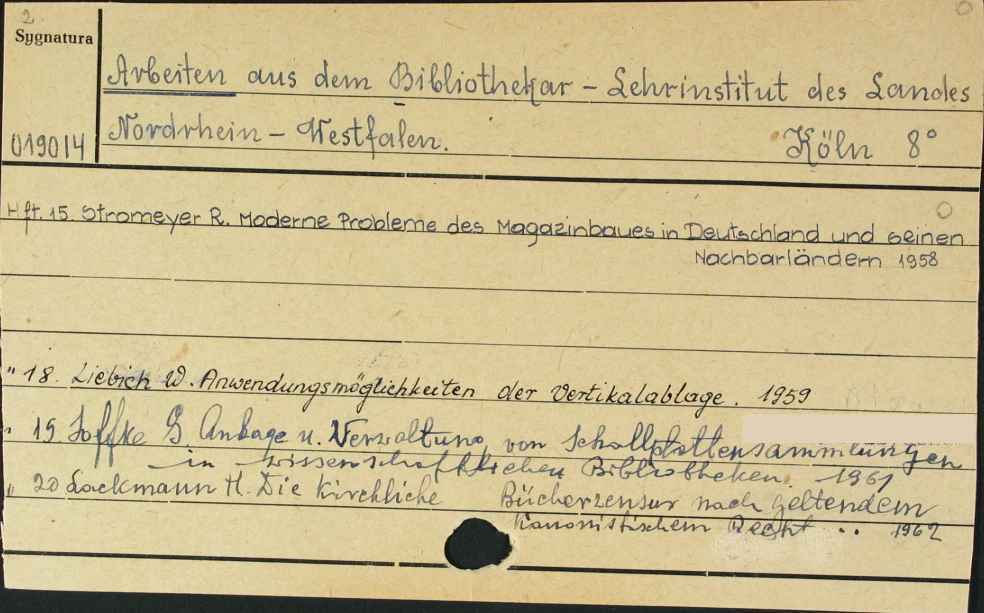 2
Sygnatura
Arbeiten aus dem Bibliothekar - Lehrinstitut des Landes
019014 Nordrhein - Westfalen. Köln 8°
Hft. 15. Stromeyer R. Moderne Probleme des Magazinbaues in Deutschland und seinen
Nachbarländern 1958
" 18. Liebich W. Anwendungsmöglichkeiten der Vertikalablage. 1959
" 19 Soffke G. Anlage u. Verwaltung von Schallplattensammlungen
in wissenschaftlichen Bibliotheken. 1961
" 20 Lackmann H. Die Kirchliche Bücherzensur nach geltendem
Kanonistischem Recht .. 1962